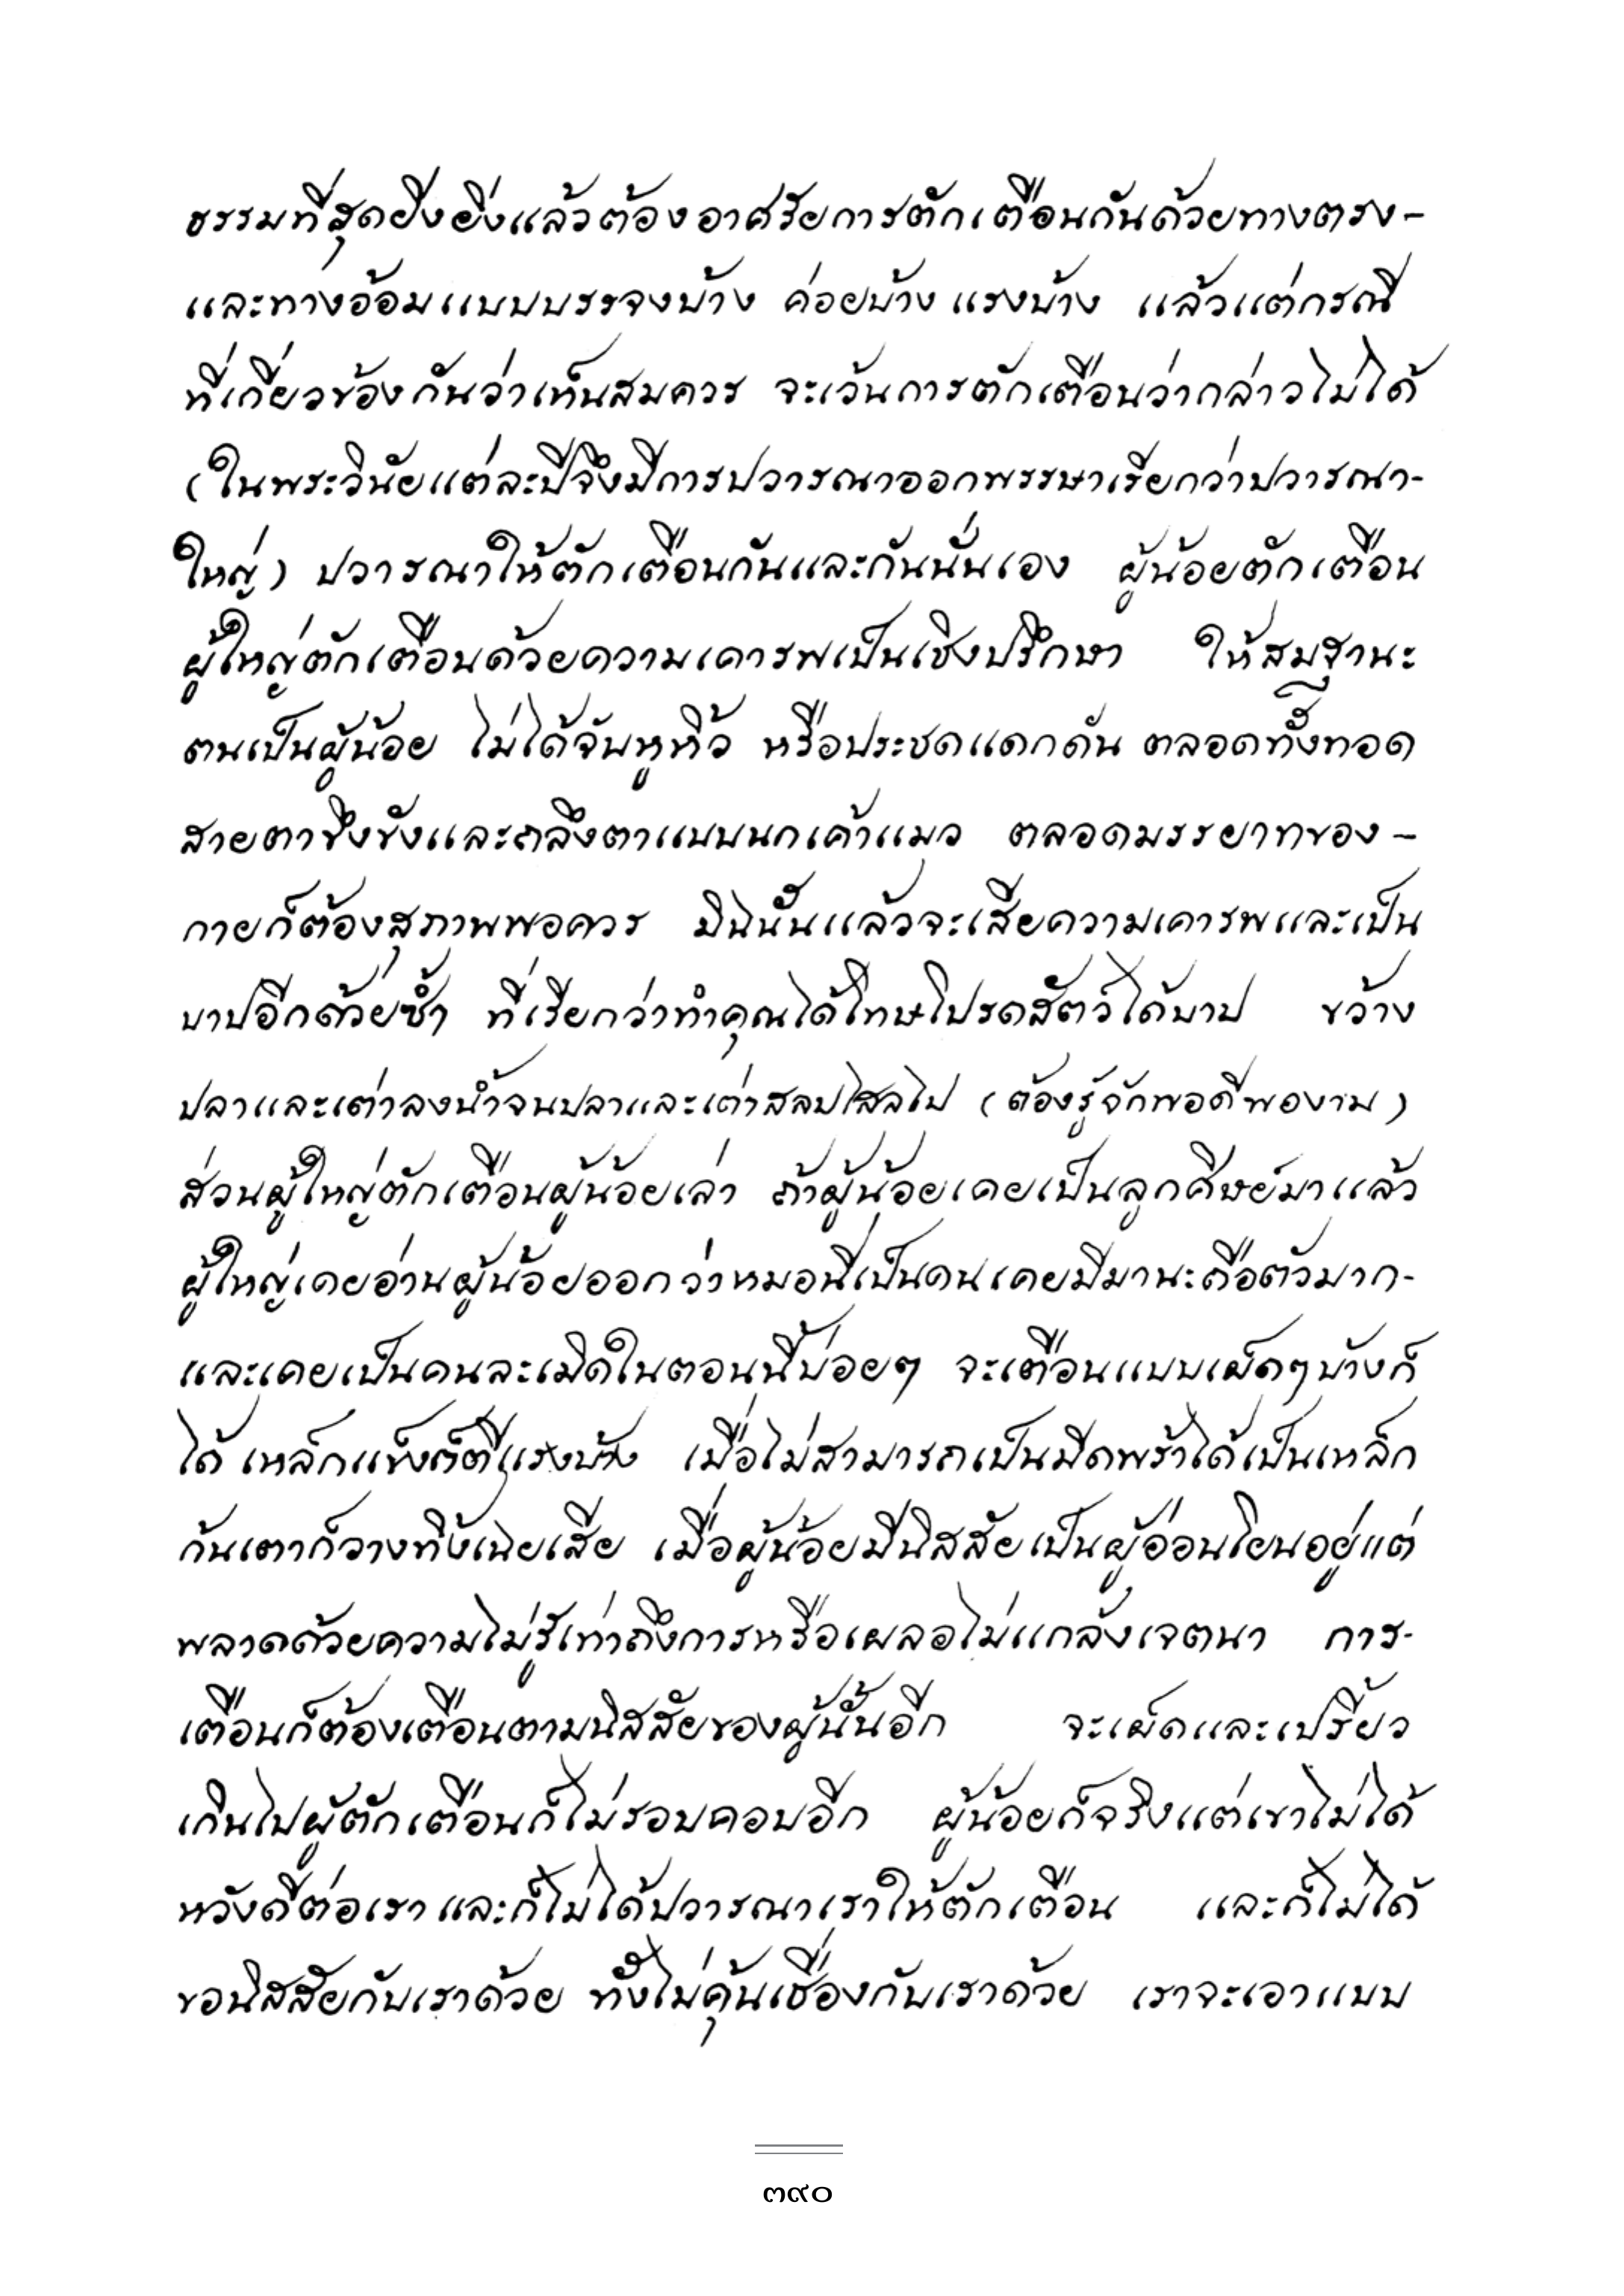 ธรรมที่สุดยิ่งยิ่งแล้วต้องอาศรัยการตักเตือนกันด้วยทางตรง-
และทางอ้อมแบบบรรจงบ้าง ค่อยบ้าง แรงบ้าง แล้วแต่กรณี
ที่เกี่ยวข้องกันว่าเห็นสมควร จะเว้นการตักเตือนว่ากล่าวไม่ได้
(ในพระวินัยแต่ละปีจึงมีการปวารณาออกพรรษาเรียกว่าปวารณา-
ใหญ่) ปวารณาให้ตักเตือนกันและกันนั่นเอง ผู้น้อยตักเตือน
ผู้ใหญ่ตักเตือนด้วยความเคารพเป็นเชิงปรึกษา ให้สมฐานะ
ตนเป็นผู้น้อย ไม่ได้จับหูหิ้ว หรือประชดแดกดัน ตลอดทั้งทอด
สายตาขึงขังและถลึงตาแบบนกเค้าแมว ตลอดมรรยาทของ-
กายก็ต้องสุภาพพอควร มิฉนั้นแล้วจะเสียความเคารพและเป็น
บาปอีกด้วยซ้ำ ที่เรียกว่าทำคุณได้โทษโปรดสัตว์ได้บาป ขว้าง
ปลาและเต่าลงน้ำจนปลาและเต่าสลบไสลไป (ต้องรู้จักพอดีพองาม)
ส่วนผู้ใหญ่ตักเตือนผู้น้อยเล่า ถ้าผู้น้อยเคยเป็นลูกศิษย์มาแล้ว
ผู้ใหญ่เคยอ่านผู้น้อยออกว่าหมอนี่เป็นคนเคยมีมานะถือตัวมาก-
และเคยเป็นคนละเมิดในตอนนี้บ่อยๆ จะเตือนแบบเผ็ดๆบ้างก็
ได้ เหล็กแข็งก็ตีแรงบ้าง เมื่อไม่สามารถเป็นมีดพร้าได้เป็นเหล็ก
ก้นเตาก็วางทิ้งเฉยเสีย เมื่อผู้น้อยมีนิสสัยเป็นผู้อ่อนโยนอยู่แต่
พลาดด้วยความไม่รู้เท่าถึงการหรือเผลอไม่แกล้งเจตนา การ-
เตือนก็ต้องเตือนตามนิสสัยของผู้นั้นอีก จะเผ็ดและเปรี้ยว
เกินไปผู้ตักเตือนก็ไม่รอบคอบอีก ผู้น้อยก็จริงแต่เขาไม่ได้
หวังดีต่อเรา และก็ไม่ได้ปวารณาเราให้ตักเตือน และก็ไม่ได้
ขอนิสสัยกับเราด้วย ทั้งไม่คุ้นเชื่องกับเราด้วย เราจะเอาแบบ
๓๙๐